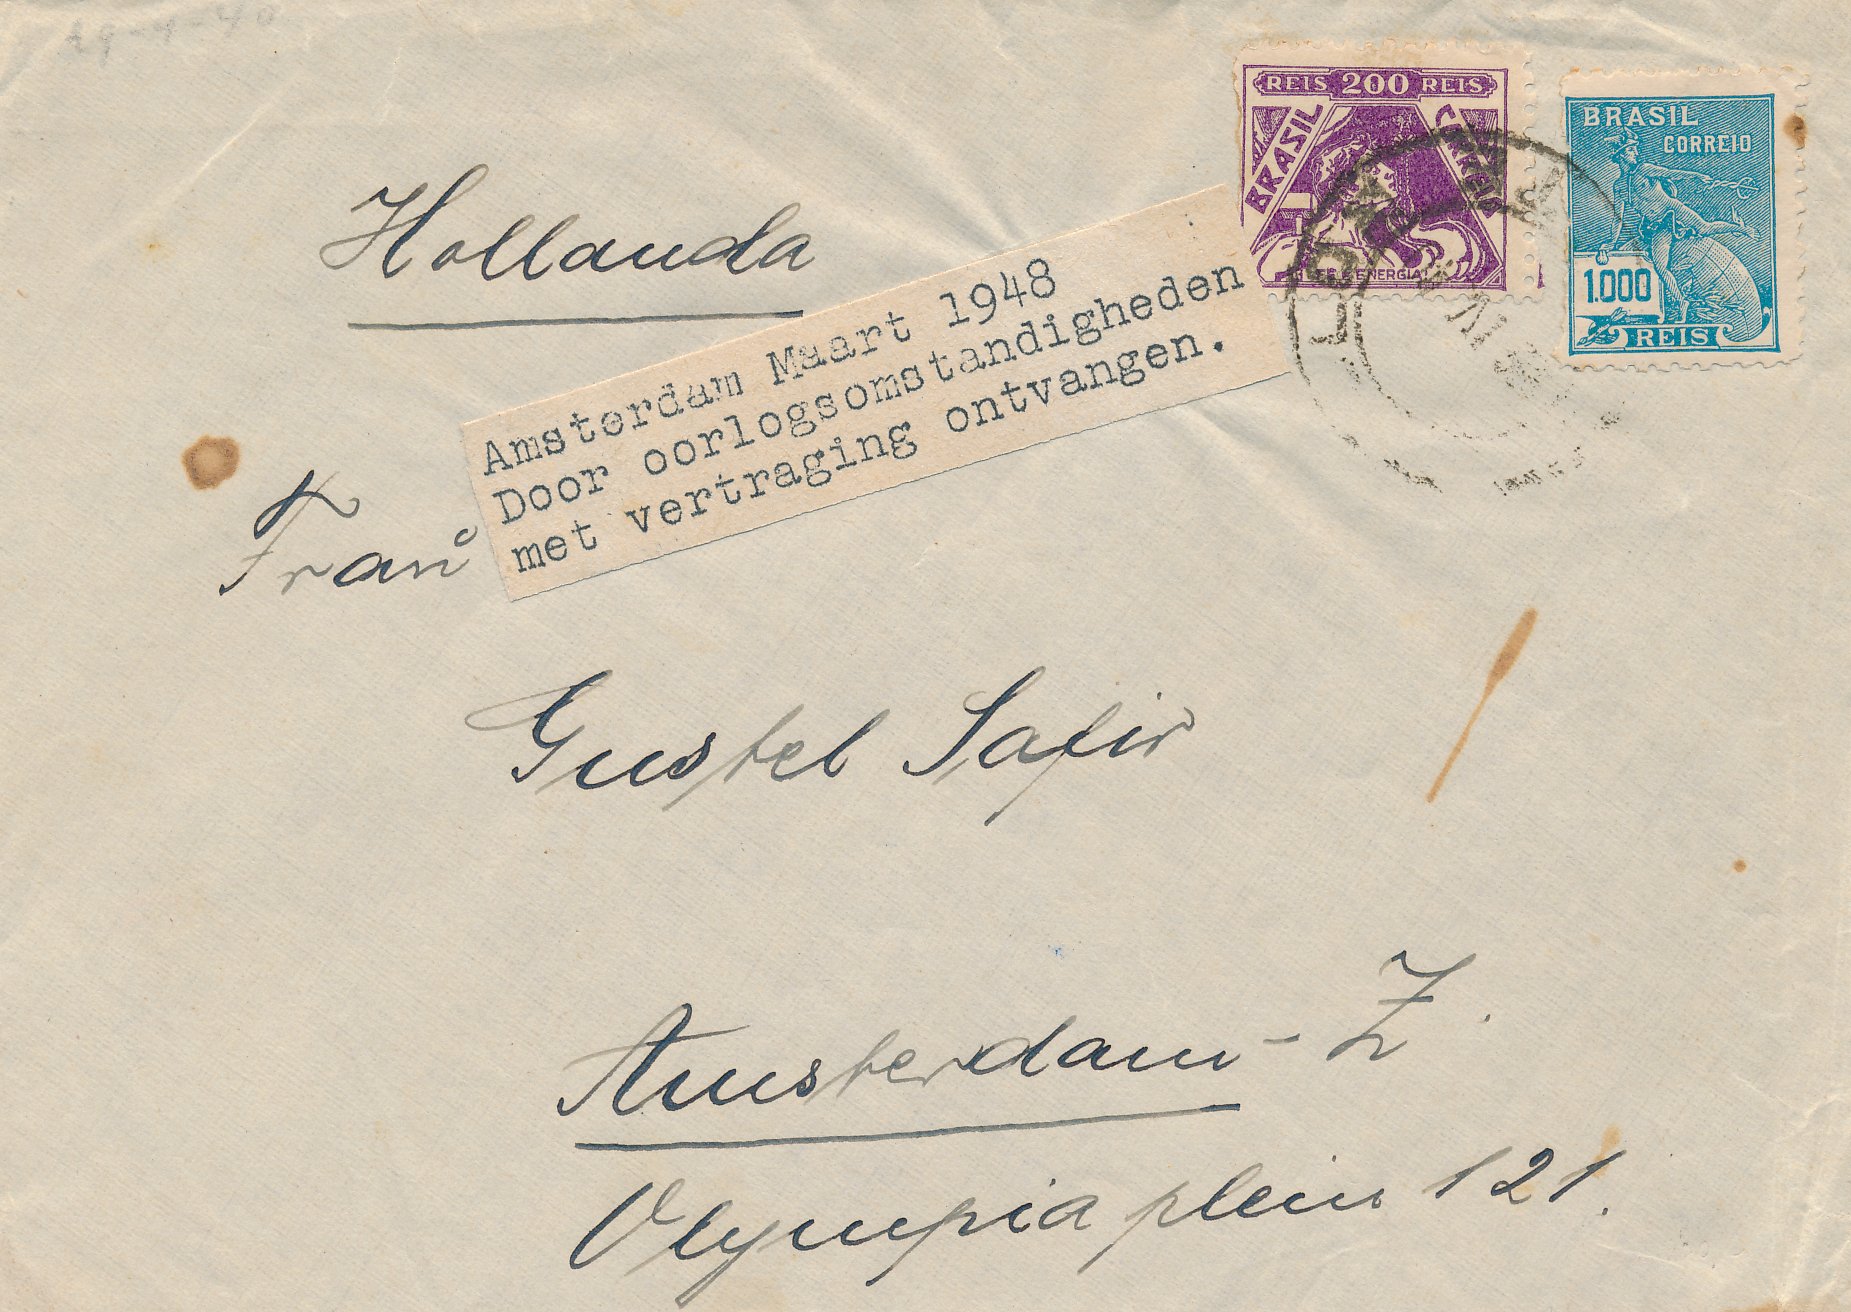 29-4-40
REIS 200 REIS
BRASIL CORREIO
FÉ E ENERGIA
BRASIL
CORREIO
1.000
REIS
Hollanda
Amsterdam Maart 1948
Door oorlogsomstandigheden
met vertraging ontvangen.
Gustel Safir
Amsterdam-Z.
Olympiaplein 121.